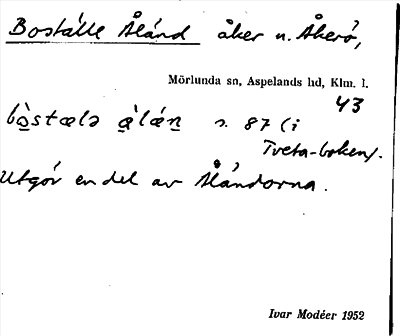 Boställe Åländ åker n. Åkerö,
Mörlunda sn, Aspelands hd, Klm. l.
43
bòstælə àlǽn s. 87 (i
Tveta-boken).
Utgör en del av Åländorna.
Ivar Modéer 1952